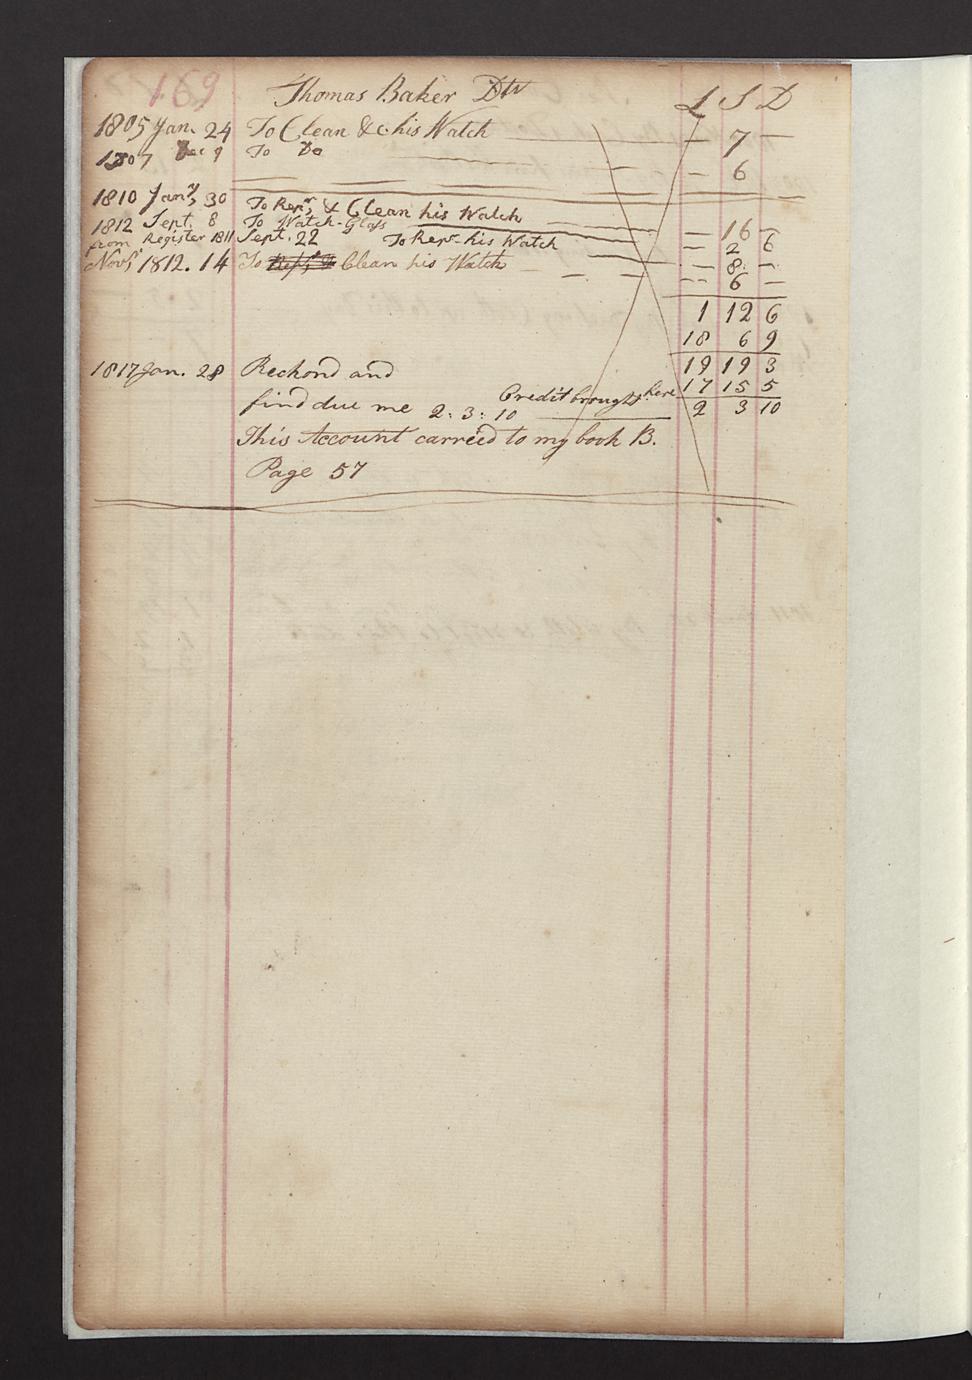 169 Thomas Baker Dtr £ S D
1805 Jan. 24 To Clean &c his Watch — 7 —
1807 Dec 9 To Do — 6
1810 Jany, 30 To Repr, & Clean his Watch — 16 —
1812 Sept. 8 To Watch-Glass — 2 6
from Register 1811 Sept. 22 To Repr his Watch — 8 —
Novr 1812. 14 To Clean his Watch — 6 —
1 12 6
18 6 9
19 19 3
1817 Jan. 28 Reckond and
Credit brought here 17 15 5
find due me 2: 3: 10 2 3 10
This Account carreed to my book B.
Page 57